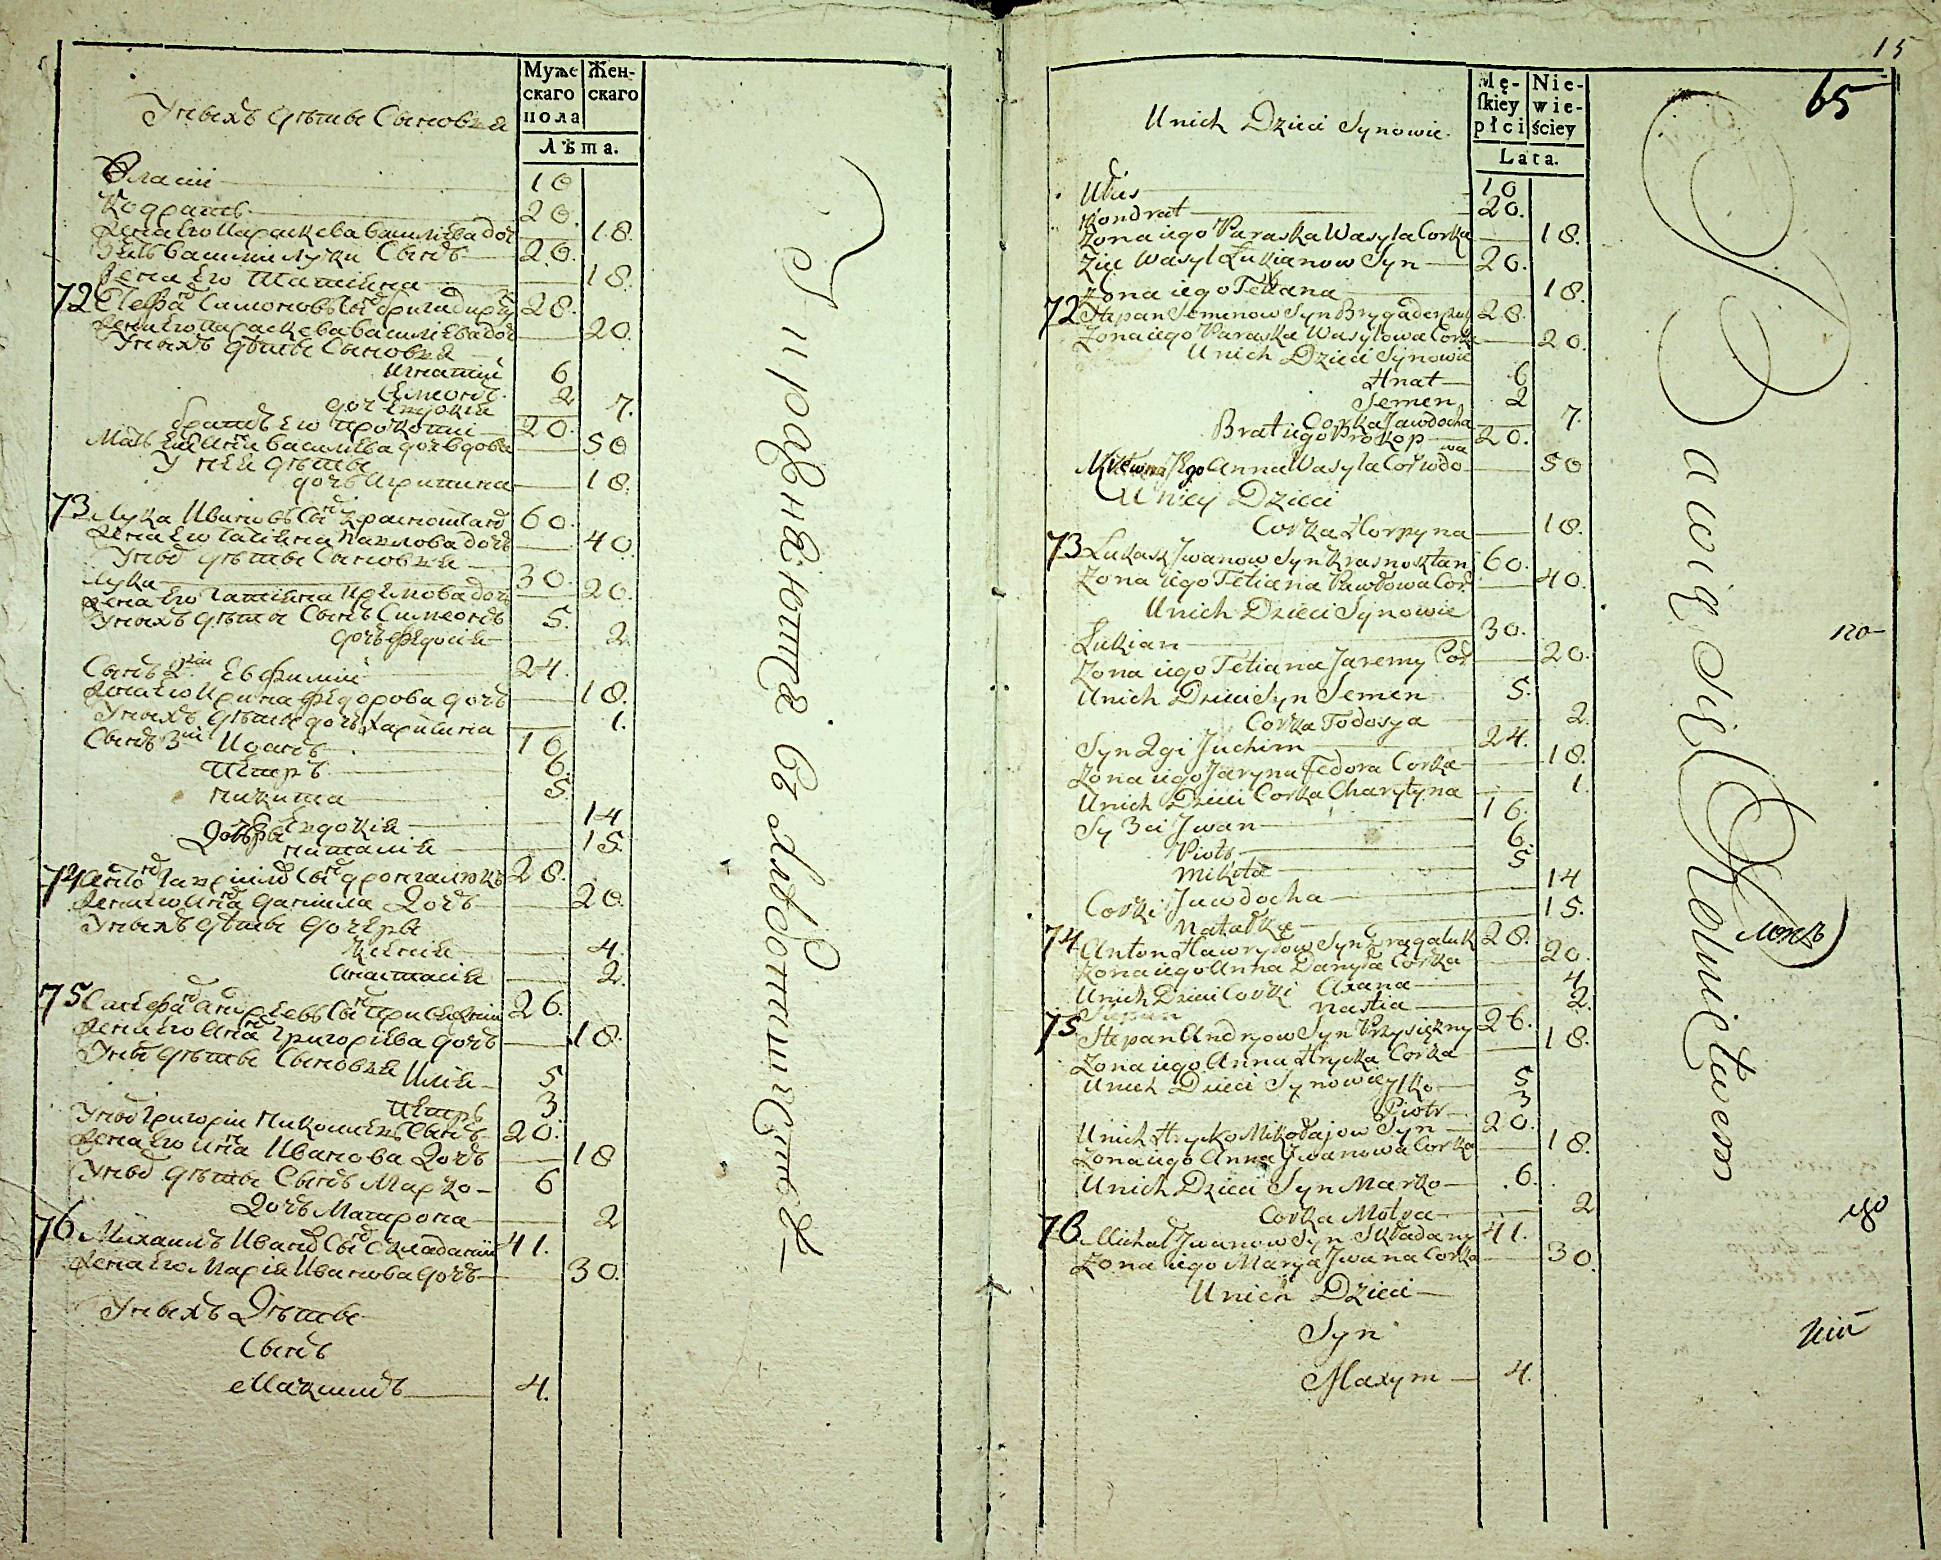 Муже
скаго
пола
Жен-
скаго
Лѣта.
Унихъ дѣти Сыновья
Власій 10
Кодратъ 20.
Жена его Параскева Василіева доч 18.
Зять Василій Луки Сынъ 20.
Жена Его Татіяна 18.
72 Стефа Симоновъ Сы 28.
Жена его Параскева Василіева доч 20.
Унихъ дѣти Сыновья
Игнатій 6
Симеонъ 2
доч Евдокія 7.
братъ Его Прокопій 20.
Мать Василіева дочь вдова 50
У нея дѣти
дочь Агрипина 18.
73 Лука Ивановъ Сы 60.
Жена Его Татіяна Павлова дочь 40.
Унихъ дѣти Сыновья
Лука 30.
Жена Его Татіяна дочь 20.
Унихъ дѣти Сынъ Симеонъ 5.
дочь Федосія 2.
Сынъ 2ій Евфимій 24.
Жена его Ирина Федорова дочь 18.
Унихъ дѣти дочь Харитина 1.
Сынъ 3ій Иванъ 16.
Петръ 6.
Никита 5.
Евдокія 14
Наталія 15.
74 28.
Жена его Анна Данила Дочь 20.
Унихъ дѣти дочери
Ксенія 4.
Анастасія 2.
75 26.
Жена его Анна Григоріева дочь 18.
Унихъ дѣти Сыновья Илія 5
Петръ 3.
Унихъ Григорій Николаевъ Сынъ 20.
Жена Его Анна Иванова Дочь 18
Унихъ дѣти Сынъ Марко 6
Дочь Матрона 2
76 Михаилъ Ивановъ Сы Складаний 41.
Жена Его Марія Иванова дочь 30.
Унихъ Дѣти
Сынъ
Максимъ 4.
Управляются въ
15
65
Mę-
skiey
płci
Nie-
wie-
ściey
Lata.
Unich Dzieci Synowie.
Ułas 10
Kondrat 20.
Zona iego Paraska Wasyla Corka 18.
Zięc Wasyl Łukianow Syn 20.
Zona iego Tetiana 18.
72 Stepan Semenow Syn 28.
Zona iego Paraska Wasylowa Corka 20.
Unich Dzieci Synowie
Hnat 6
Semen 2
Corka Jawdocha 7.
Brat iego Prokop 20.
Anna Wasyla Cor wdo wa 50
U niey Dzieci
Corka Horpyna 18.
73 Łukasz Jwanow Syn Krasnosztan 60.
Zona iego Tetiana Pawłowa Cor 40.
Unich Dzieci Synowie
Łukian 30.
Zona iego Tetiana Jaremy Cor 20.
Unich Dzieci Syn Semen 5.
Corka Todosya 2.
Syn 2gi Juchim 24.
Zona iego Jaryna Fedora Corka 18.
Unich Dzieci Corka Charytyna 1.
Sy 3ci Jwan 16.
Piotr 6.
Mikita 5
Corki Jawdocha 14
Natałka 15.
74 Anton Hawryłow Syn Dragaluk 28.
Zona iego Anna Danyła Corka 20.
Unich Dzieci Corki Axana 4
Nastia 2.
75 Stepan Andryow Syn Przysiężny 26.
Zona iego Anna Hrycka Corka 18.
Unich Dzieci Synowie Jlko 5
Piotr 3
Unich Hrycko Mikołajow Syn 20.
Zona iego Anna Jwanowa Corka 18.
Unich Dzieci Syn Marko 6.
Corka Motra 2
76 Michał Jwanow Syn Składany 41.
Zona iego Marya Jwana Corka 30.
Unich Dzieci
Syn
Maxym 4.
Bawią się Rolnictwem